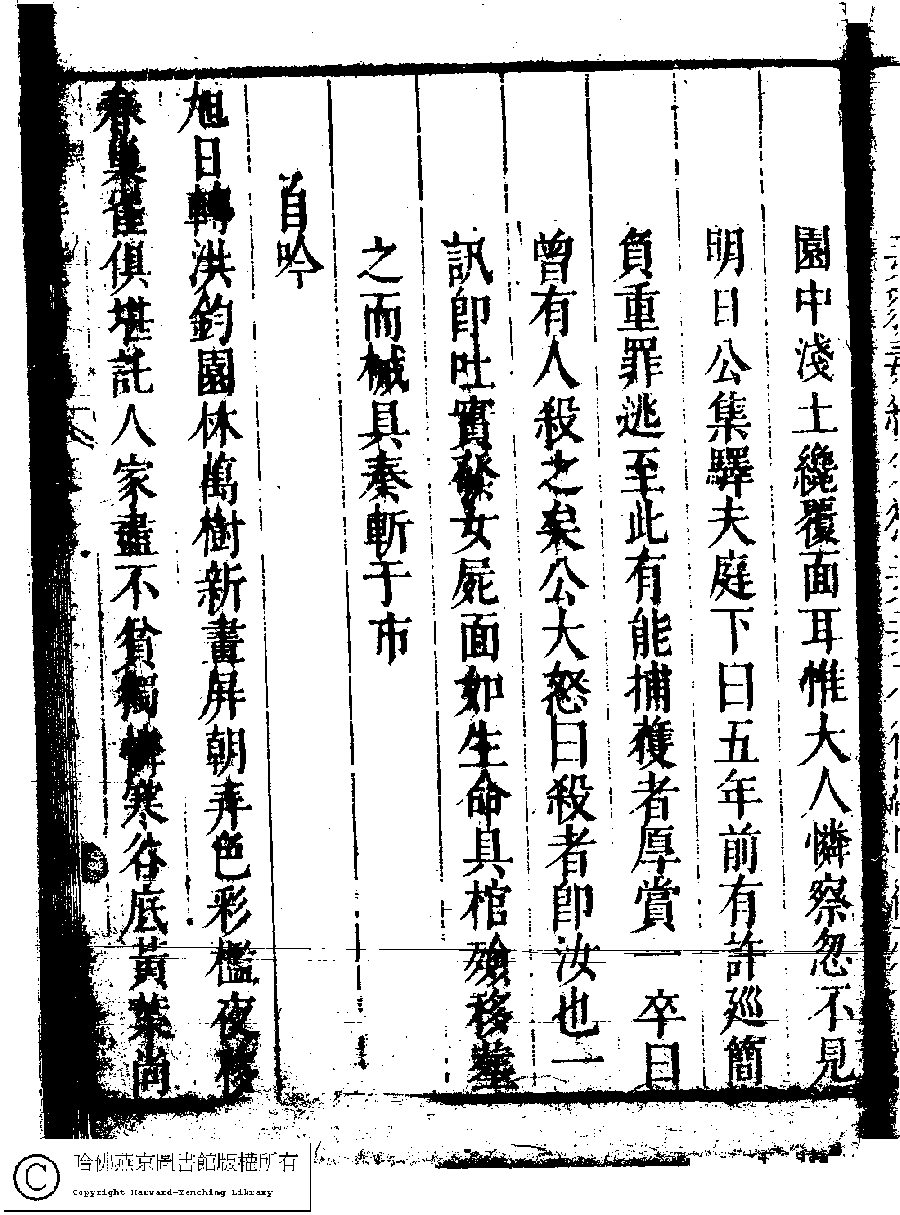 園中淺土纔覆面耳惟大人憐察忽不見
明日公集驛夫庭下曰五年前有許廵簡
負重罪逃至此有能捕獲者厚賞一卒曰
曾有人殺之矣公大怒曰殺者卽汝也一
訊卽吐實發女屍面如生命具棺殮移葬
之而械具秦斬于市
首吟
旭日轉洪鈞園林萬樹新畫屏朝弄色彩檻夜移
春巢雀俱堪託人家盡不貧獨憐寒谷底黃葉尚
哈佛燕京圖書館版權所有
Copyright Harvard-Yenching Library